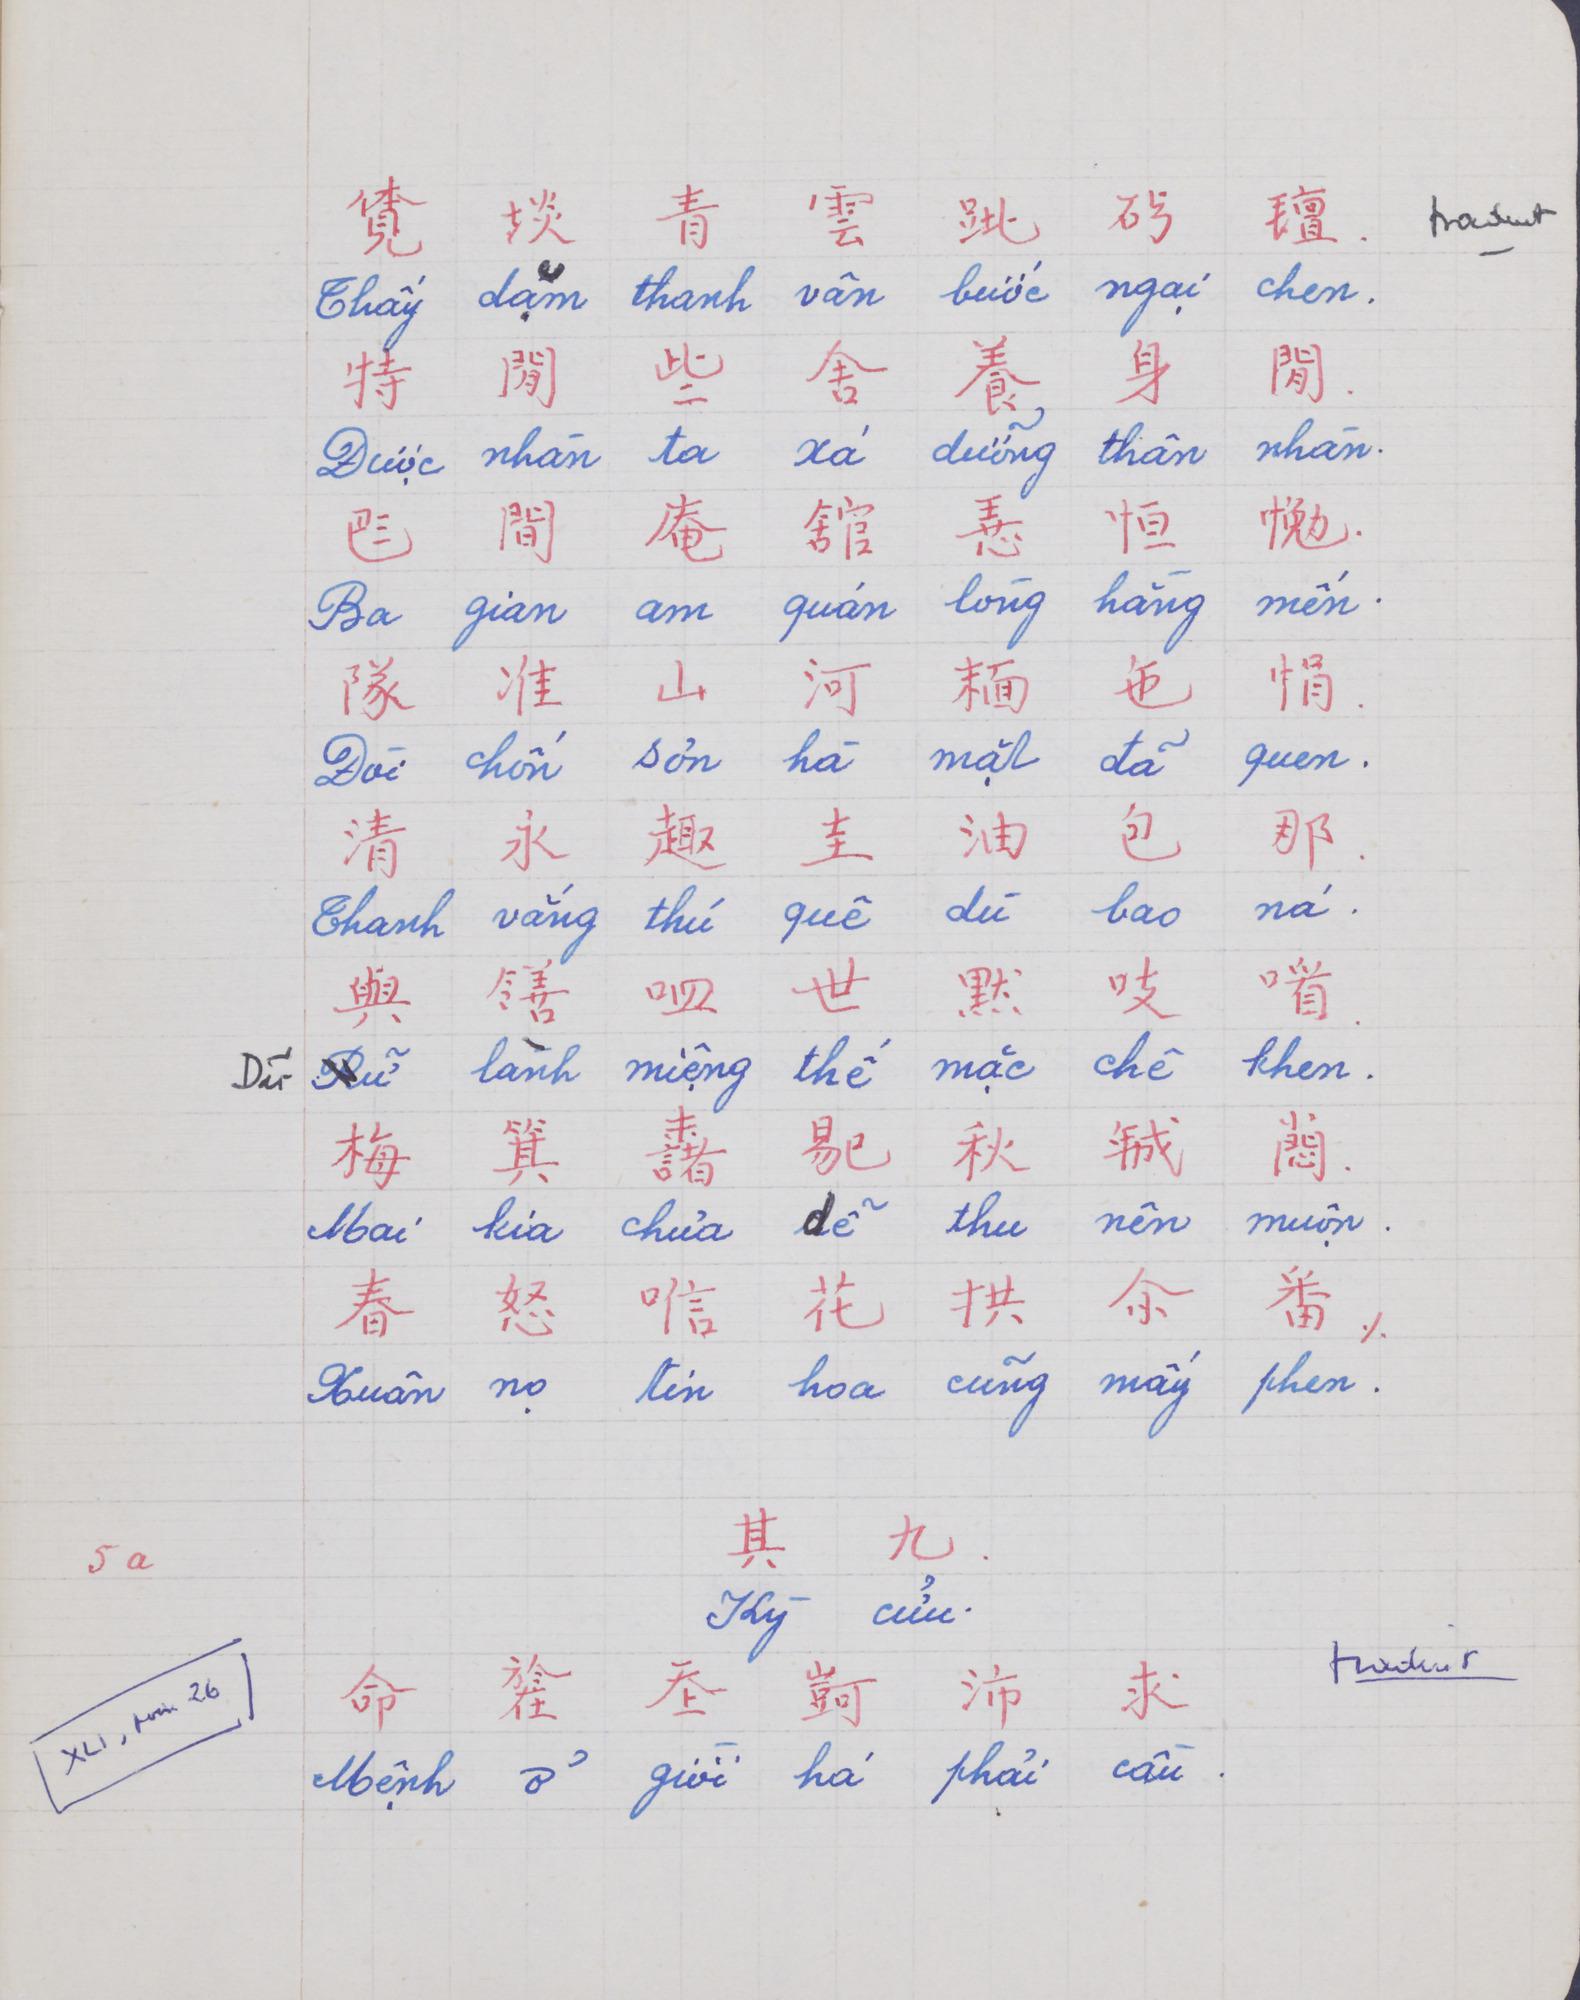 覓 埮 青 雲 跐 砖 䡀. traduit
Thấy dặm thanh vân bước ngại chen.
特 閒 些 舍 養 身 閒.
Được nhàn ta xá dưỡng thân nhàn.
𠀧 間 庵 舘 𢚸 恒 㦖.
Ba gian am quán lòng hằng mến.
隊 准 山 河 𩈘 㐌 悁.
Đòi chốn sơn hà mặt đã quen.
清 永 趣 圭 油 包 那.
Thanh vắng thú quê dù bao ná.
與 饍 𠰘 世 默 吱 㗂.
Dữ Rữ lành miệng thế mặc chê khen.
梅 箕 𣗓 易 秋 𢧚 悶.
Mai kia chửa dễ thu nên muộn.
春 怒 信 花 拱 余 番 ⁒
Xuân nọ tin hoa cũng mấy phen.
其 九.
5a
Kỳ cửu.
命 於 𡗶 哿 沛 求 traduit
XLI, 26
Mệnh ở giời há phải cầu.